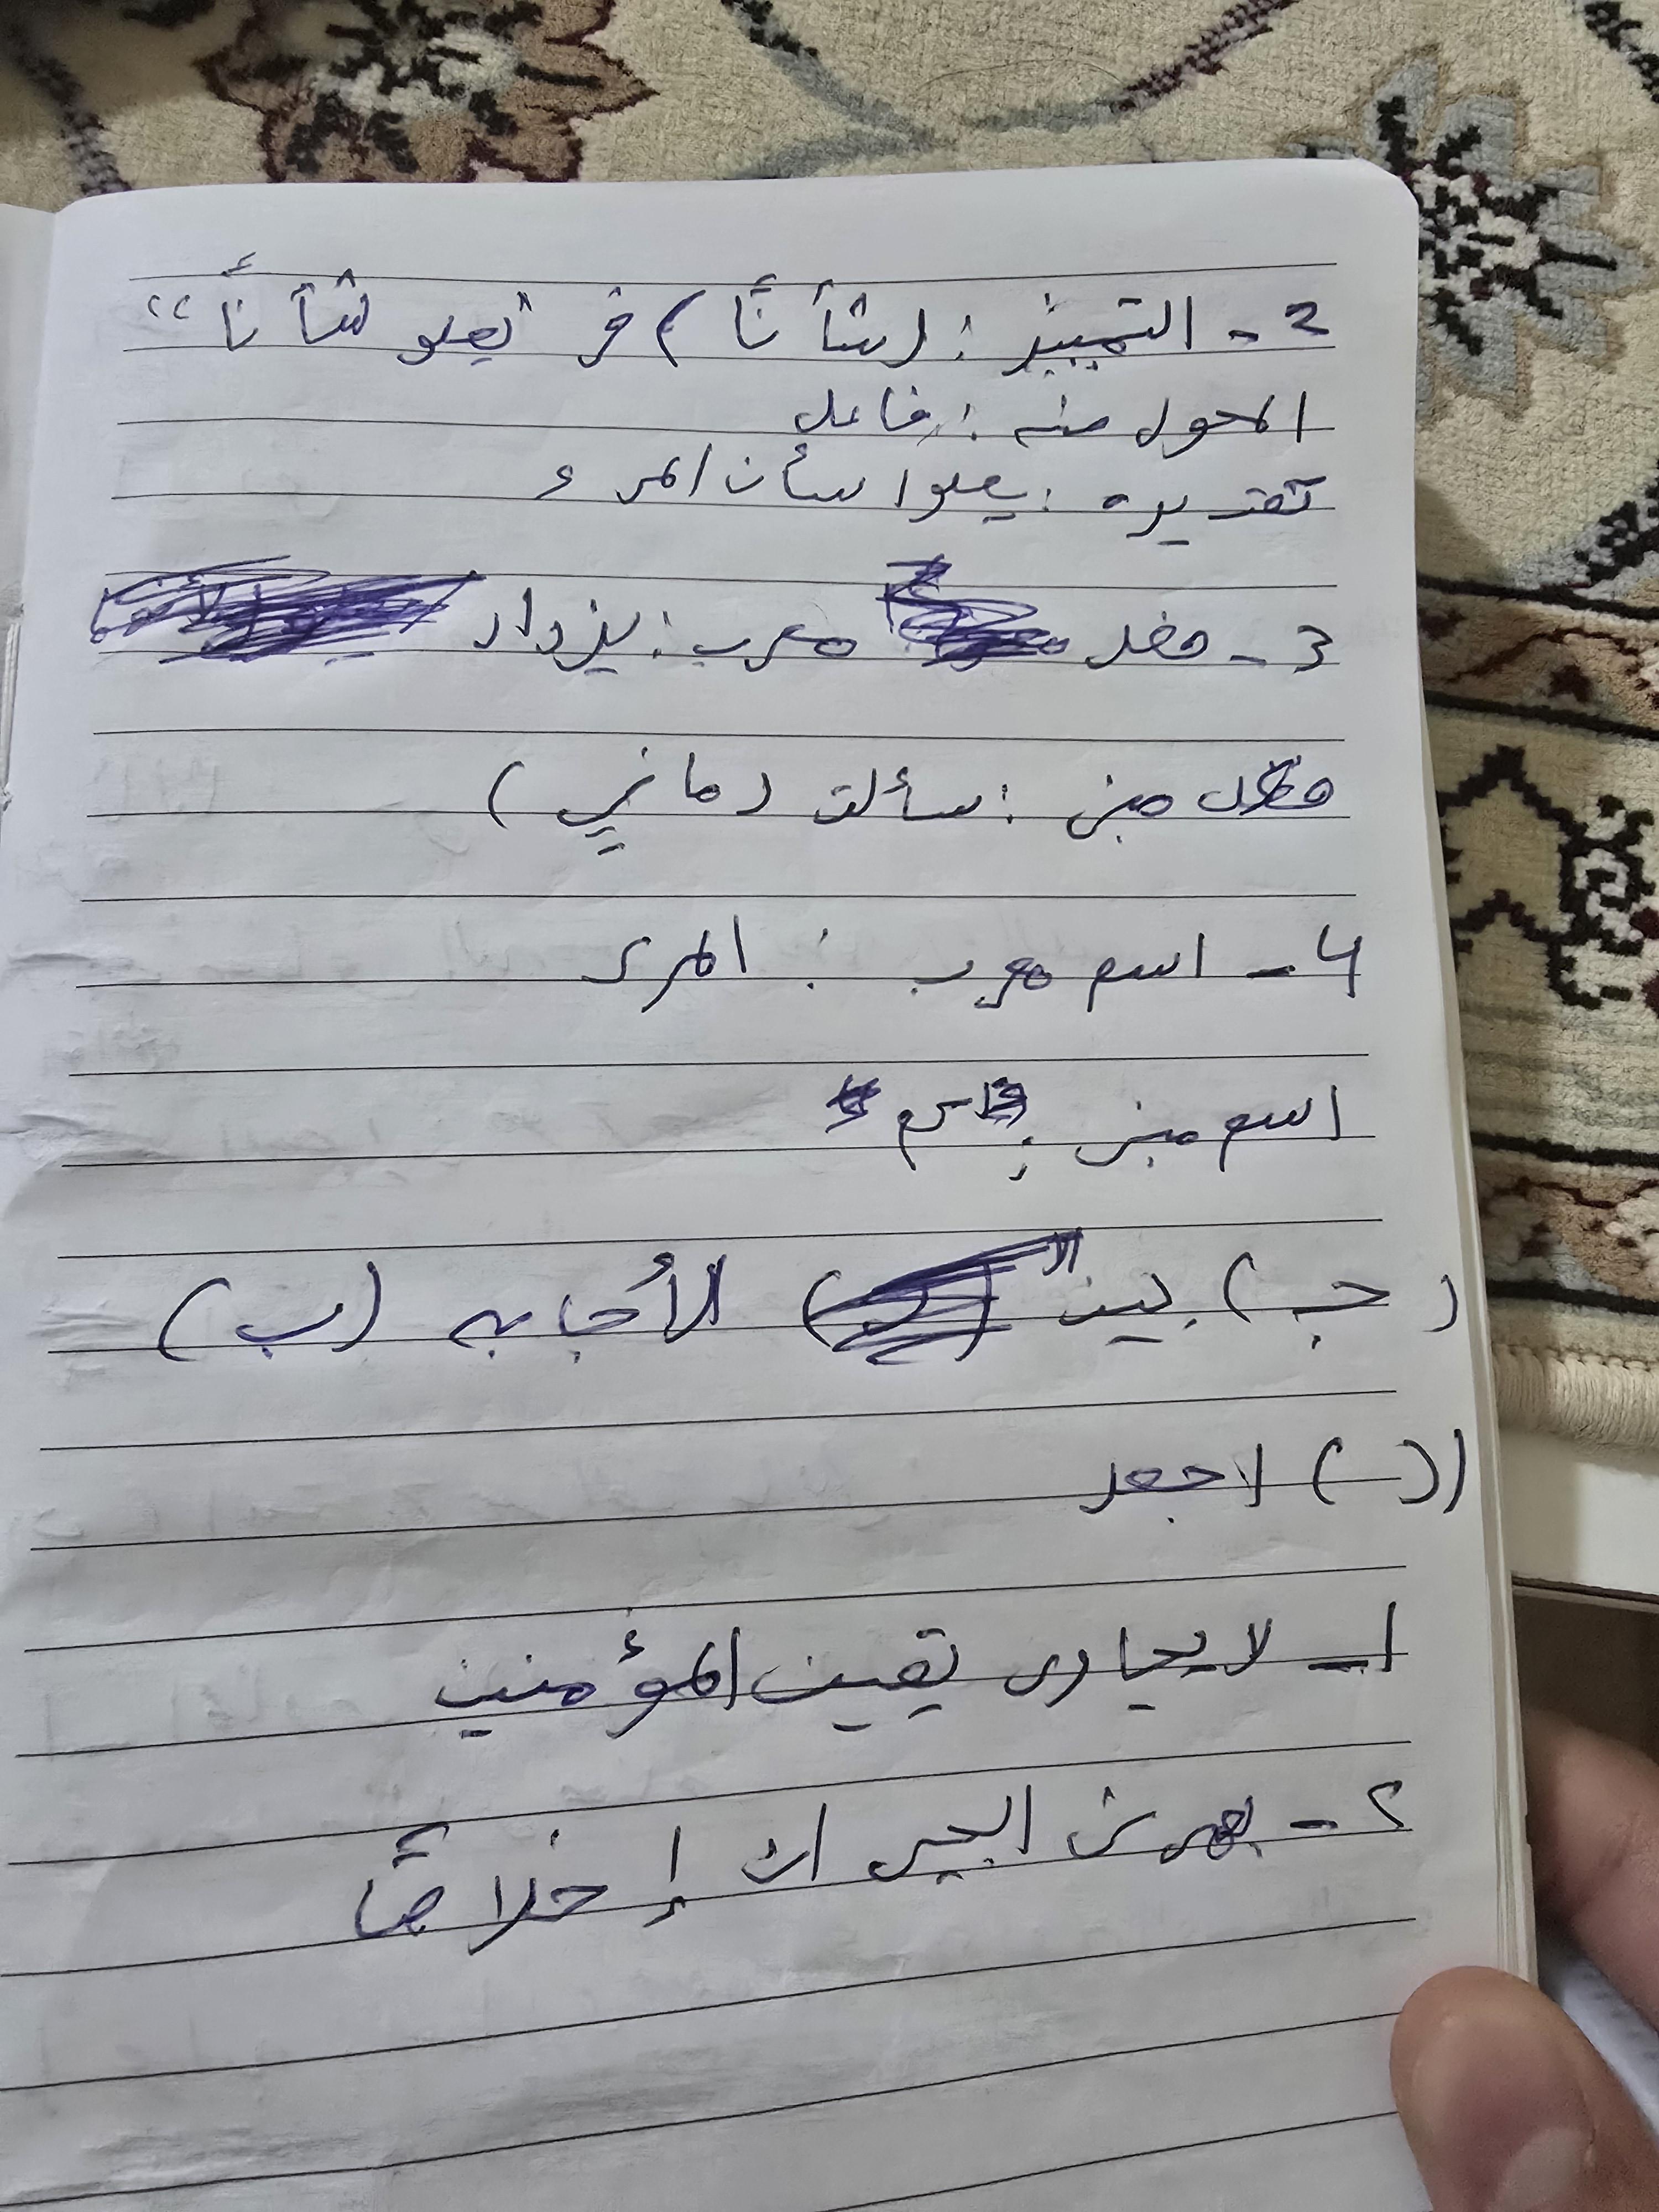 2 - التمييز : (شأناً) في "يعلو شأناً"
المحول منه : فاعل
تقديره : يعلوا شأن المرء
3 - فعل معرب : يزداد
فعل مبني : سألت (ماضي)
4 - اسم معرب : المرء
اسم مبني : كم
(ج) بين الأجابه (ب)
(د) لاجعد
1 - لا يجارى يقين المؤمنين
2 - بعرض الجيران إخلاصاً